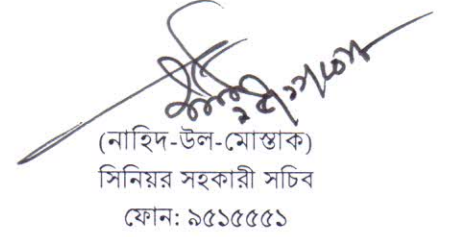 (নাহিদ-উল-মোস্তাক)
সিনিয়র সহকারী সচিব
ফোন: ৯৫১৫৫৫১